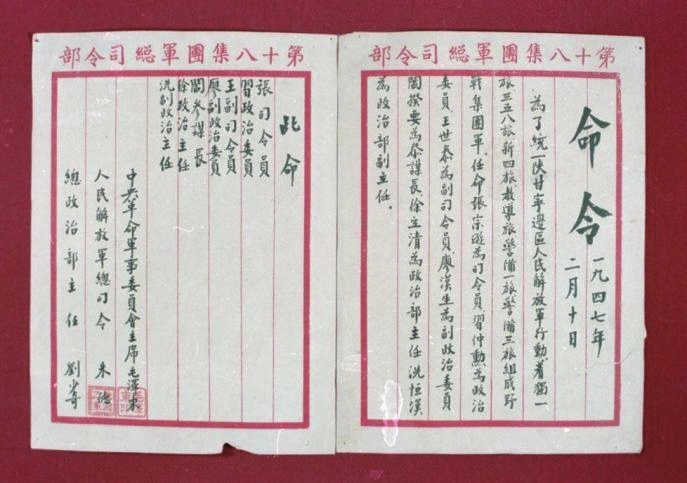 第十八集團軍總司令部
命令
一九四七年
二月十日
為了統一陝甘寧邊區人民解放軍行動、着獨一
旅三五八旅新四旅教導旅警備一旅警備三旅組成野
戰集團軍、任命張宗遜為司令員習仲勳為政治
委員王世泰為副司令員廖漢生為副政治委員
閻揆要為參謀長、徐立清為政治部主任冼恒漢
為政治部副主任。
第十八集團軍總司令部
此命
張司令員
習政治委員
王副司令員
廖副政治委員
閻參謀長
徐政治主任
冼副政治主任
中央革命軍事委員會主席毛澤東
人民解放軍總司令 朱德
總政治部主任 劉少奇